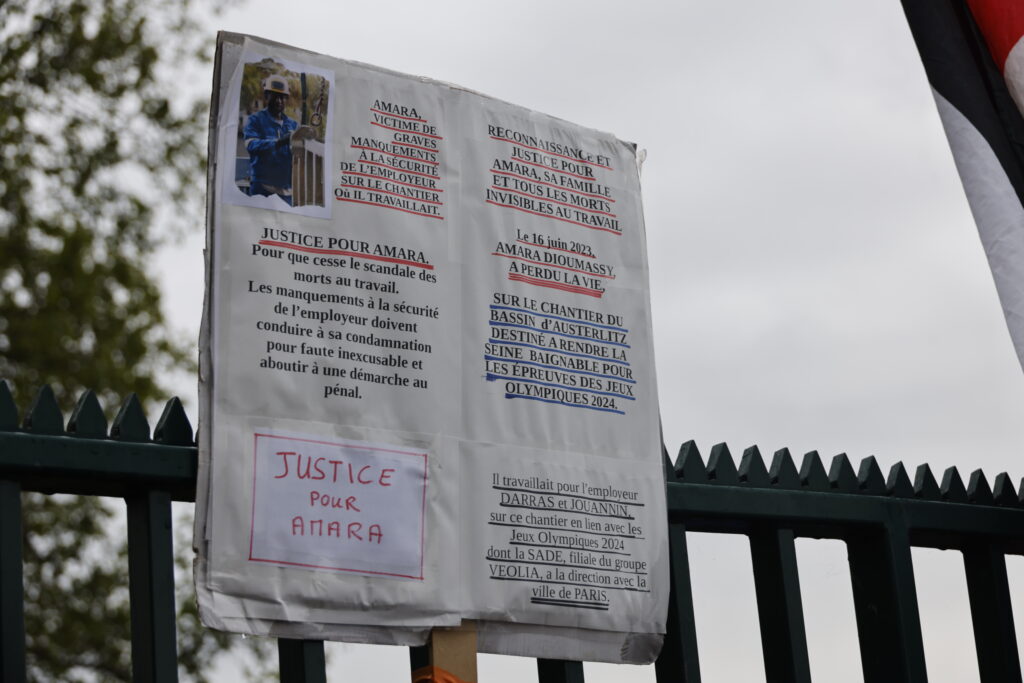 AMARA,
VICTIME DE
GRAVES
MANQUEMENTS
À LA SÉCURITÉ
DE L'EMPLOYEUR
SUR LE CHANTIER
Où IL TRAVAILLAIT.
JUSTICE POUR AMARA.
Pour que cesse le scandale des
morts au travail.
Les manquements à la sécurité
de l'employeur doivent
conduire à sa condamnation
pour faute inexcusable et
aboutir à une démarche au
pénal.
JUSTICE
POUR
AMARA
RECONNAISSANCE ET
JUSTICE POUR
AMARA, SA FAMILLE
ET TOUS LES MORTS
INVISIBLES AU TRAVAIL
Le 16 juin 2023,
AMARA DIOUMASSY
A PERDU LA VIE,
SUR LE CHANTIER DU
BASSIN d'AUSTERLITZ
DESTINÉ A RENDRE LA
SEINE BAIGNABLE POUR
LES ÉPREUVES DES JEUX
OLYMPIQUES 2024.
Il travaillait pour l'employeur
DARRAS et JOUANNIN,
sur ce chantier en lien avec les
Jeux Olympiques 2024
dont la SADE, filiale du groupe
VEOLIA, a la direction avec la
ville de PARIS.